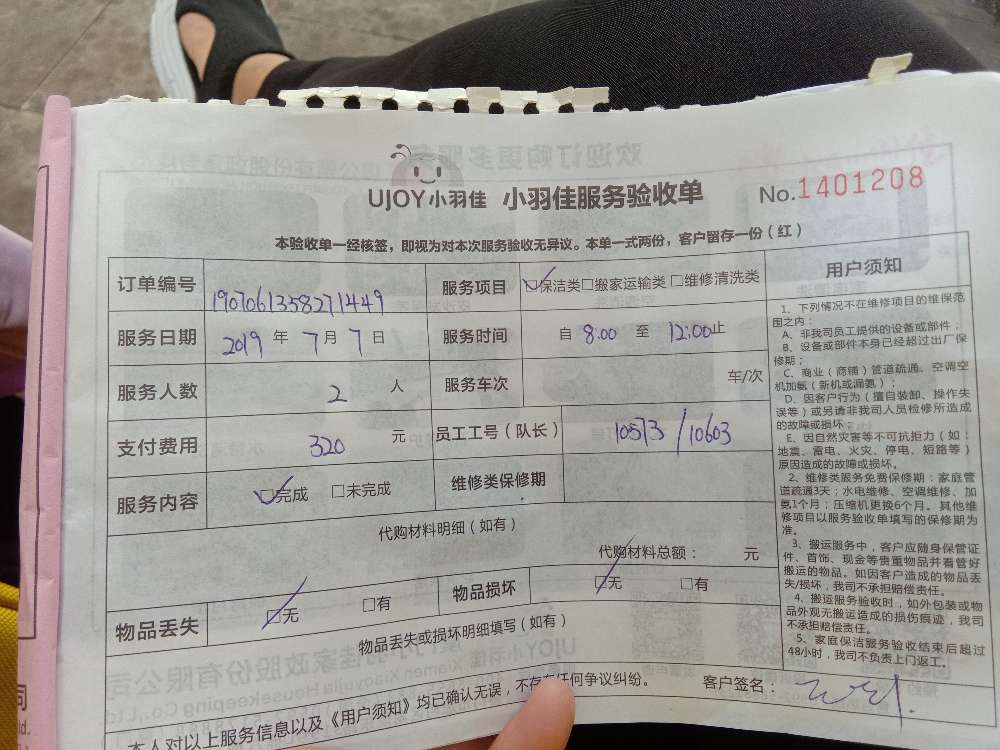 UJOY小羽佳 小羽佳服务验收单 No.1401208
本验收单一经核签，即视为对本次服务验收无异议。本单一式两份，客户留存一份（红）
订单编号 1907061358271449 服务项目 保洁类 搬家运输类 维修清洗类
服务日期 2019 年 7 月 7 日 服务时间 自 8:00 至 12:00止
服务人数 2 人 服务车次 车/次
支付费用 320 元 员工工号（队长） 10573/10603
服务内容 完成 未完成 维修类保修期
代购材料明细（如有）
代购材料总额： 元
物品丢失 无 有 物品损坏 无 有
物品丢失或损坏明细填写（如有）
本人对以上服务信息以及《用户须知》均已确认无误，不存在任何争议纠纷。 客户签名：
用户须知
1、下列情况不在维修项目的维保范
围之内：
A、非我司员工提供的设备或部件；
B、设备或部件本身已经超过出厂保
修期；
C、商业（商铺）管道疏通、空调空
机加氨（新机或漏氨）；
D、因客户行为（擅自装卸、操作失
误等）或另请非我司人员检修所造成
的故障或损坏；
E、因自然灾害等不可抗拒力（如：
地震、雷电、火灾、停电、短路等）
原因造成的故障或损坏。
2、维修类服务免费保修期：家庭管
道疏通3天；水电维修、空调维修、加
氨1个月；压缩机更换6个月。其他维
修项目以服务验收单填写的保修期为
准。
3、搬运服务中，客户应随身保管证
件、首饰、现金等贵重物品并看管好
搬运的物品。如因客户造成的物品丢
失/损坏，我司不承担赔偿责任。
4、搬运服务验收时，如外包装或物
品外观无搬运造成的损伤痕迹，我司
不承担赔偿责任。
5、家庭保洁服务验收结束后超过
48小时，我司不负责上门返工。